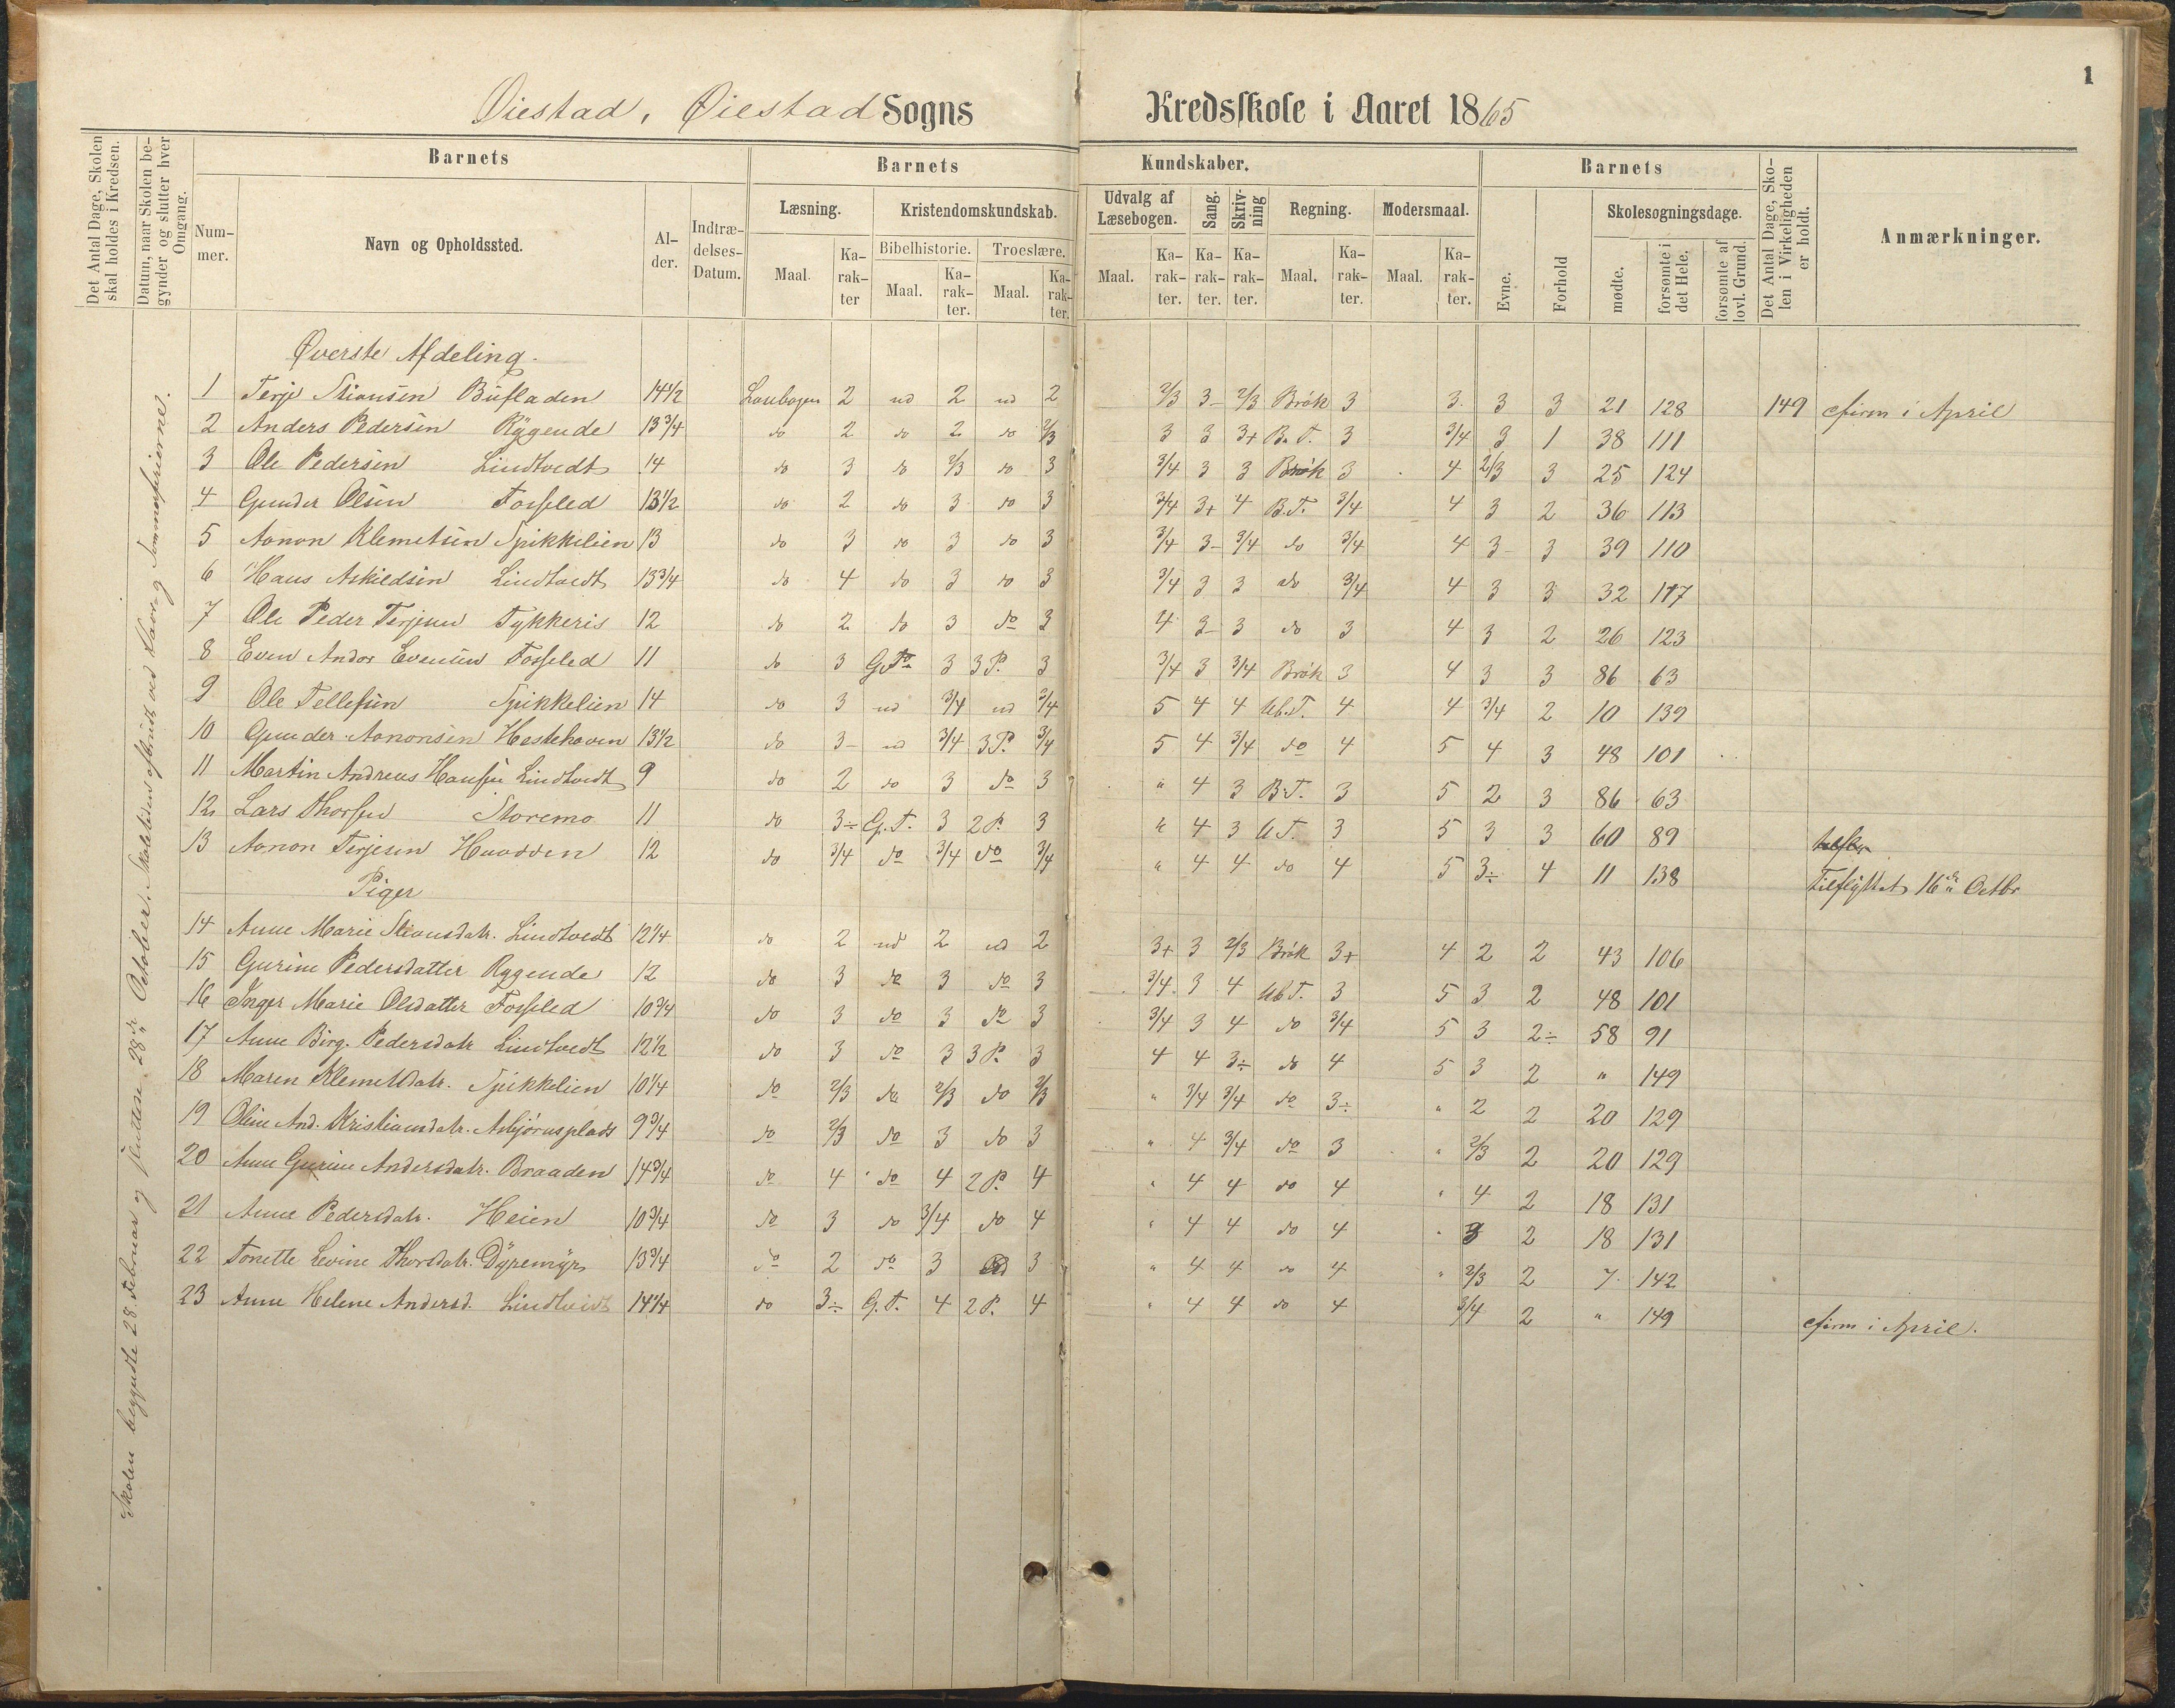 1
Øiestad, Øiestad Sogns Kredsskole i Aaret 1865
Det Antal Dage, Skolen skal holdes i Kredsen.
Datum, naar Skolen begynder og slutter hver Omgang.
Barnets
Nummer.
Navn og Opholdssted.
Alder.
Indtrædelses-Datum.
Barnets Kundskaber.
Læsning.
Maal. Karakter
Kristendomskundskab.
Bibelhistorie. Troeslære.
Maal. Karakter. Maal. Karakter.
Udvalg af Læsebogen.
Maal. Karakter.
Sang. Karakter.
Skrivning Karakter.
Regning. Maal. Karakter.
Modersmaal. Maal. Karakter.
Barnets
Evne. Forhold
Skolesøgningsdage.
mødte. forsømte i det Hele. forsømte af lovl. Grund.
Det Antal Dage, Skolen i Virkeligheden er holdt.
Anmærkninger.
Skolen begyndte 28 Februar og sluttede 28de October. Skoletiden afbrudt ved Vaar og Sommerferierne.
Øverste Afdeling.
1 Terje Stiansen Bufladen 14 1/2 Læsebogen 2 ud 2 ud 2 2/3 3- 2/3 Brök 3 3 3 3 21 128 149 cfirm i April
2 Anders Pedersen Rygende 13 3/4 do 2 do 2 do 2/3 3 3 3+ B.T. 3 3/4 3 1 38 111
3 Ole Pedersen Lindtvedt 14 do 3 do 2/3 do 3 3/4 3 3 Brök 3 4 2/3 3 25 124
4 Gunder Olsen Fosseled 13 1/2 do 2 do 3 do 3 3/4 3+ 4 B.T. 3/4 4 3 2 36 113
5 Aanon Klemetsen Spikkelien 13 do 3 do 3 do 3 3/4 3- 3/4 do 3/4 4 3- 3 39 110
6 Hans Askildsen Lindtvedt 13 3/4 do 4 do 3 do 3 3/4 3 3 do 3/4 4 3 3 32 117
7 Ole Peder Terjesen Tykkeris 12 do 2 do 3 do 3 4 3- 3 do 3 4 3 2 26 123
8 Even Andor Evensen Fosseled 11 do 3 G.T. 3 3 P. 3 3/4 3 3/4 Brök 3 4 3 3 86 63
9 Ole Tellefsen Spikkelien 14 do 3 ud 3/4 ud 3/4 5 4 4 Ub.T. 4 4 3/4 2 10 139
10 Gunder Aanonsen Hestehaven 13 1/2 do 3- ud 3/4 3 P. 3/4 5 4 3/4 do 4 5 4 3 48 101
11 Martin Andreas Hansen Lindtvedt 9 do 2 do 3 do 3 " 4 3 B.T. 3 5 2 3 86 63
12 Lars Thorsen Storemo 11 do 3÷ G.T. 3 2 P. 3 " 4 3 U.T. 3 5 3 3 60 89
13 Aanon Terjesen Haadden 12 do 3/4 do 3/4 do 3/4 " 4 4 do 4 5 3÷ 4 11 138 Tilflyttet 16de Octbr
Piger
14 Anne Marie Stiansdatr. Lindtvedt 12 1/4 do 2 ud 2 ud 2 3+ 3 2/3 Brök 3+ 4 2 2 43 106
15 Gurine Pedersdatter Rygende 12 do 3 do 3 do 3 3/4 3 4 Ub.T. 3 5 3 2 48 101
16 Inger Marie Olsdatter Fosseled 10 3/4 do 3 do 3 do 3 3/4 3 4 do 3/4 5 3 2÷ 58 91
17 Anne Birg. Pedersdatr Lindtvedt 12 1/2 do 3 do 3 3 P. 3 4 4 3÷ do 4 5 3 2 " 149
18 Maren Klemetsdatr. Spikkelien 10 1/4 do 2/3 do 2/3 do 2/3 " 3/4 3/4 do 3÷ " 2 2 20 129
19 Oline And. Kristiansdatr. Asbjörnsplads 9 3/4 do 2/3 do 3 do 3 " 4 3/4 do 3 " 2/3 2 20 129
20 Anne Gurine Andersdatr. Braaden 14 3/4 do 4 do 4 2 P. 4 " 4 4 do 4 " 4 2 18 131
21 Anne Pedersdatr. Heien 10 3/4 do 3 do 3/4 do 4 " 4 4 do 4 " 3 2 18 131
22 Tonette Levine Thorsdatr. Dyremyr 13 3/4 do 2 do 3 3 " 4 4 do 4 " 2/3 2 7 142
23 Anne Helene Andersd. Lindtveidt 14 1/4 do 3÷ G.T. 4 2 P. 4 " 4 4 do 4 3/4 2 " 149 cfirm i April.